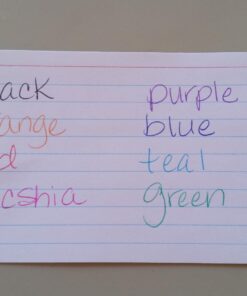 ack purple
ange blue
d teal
cshia green